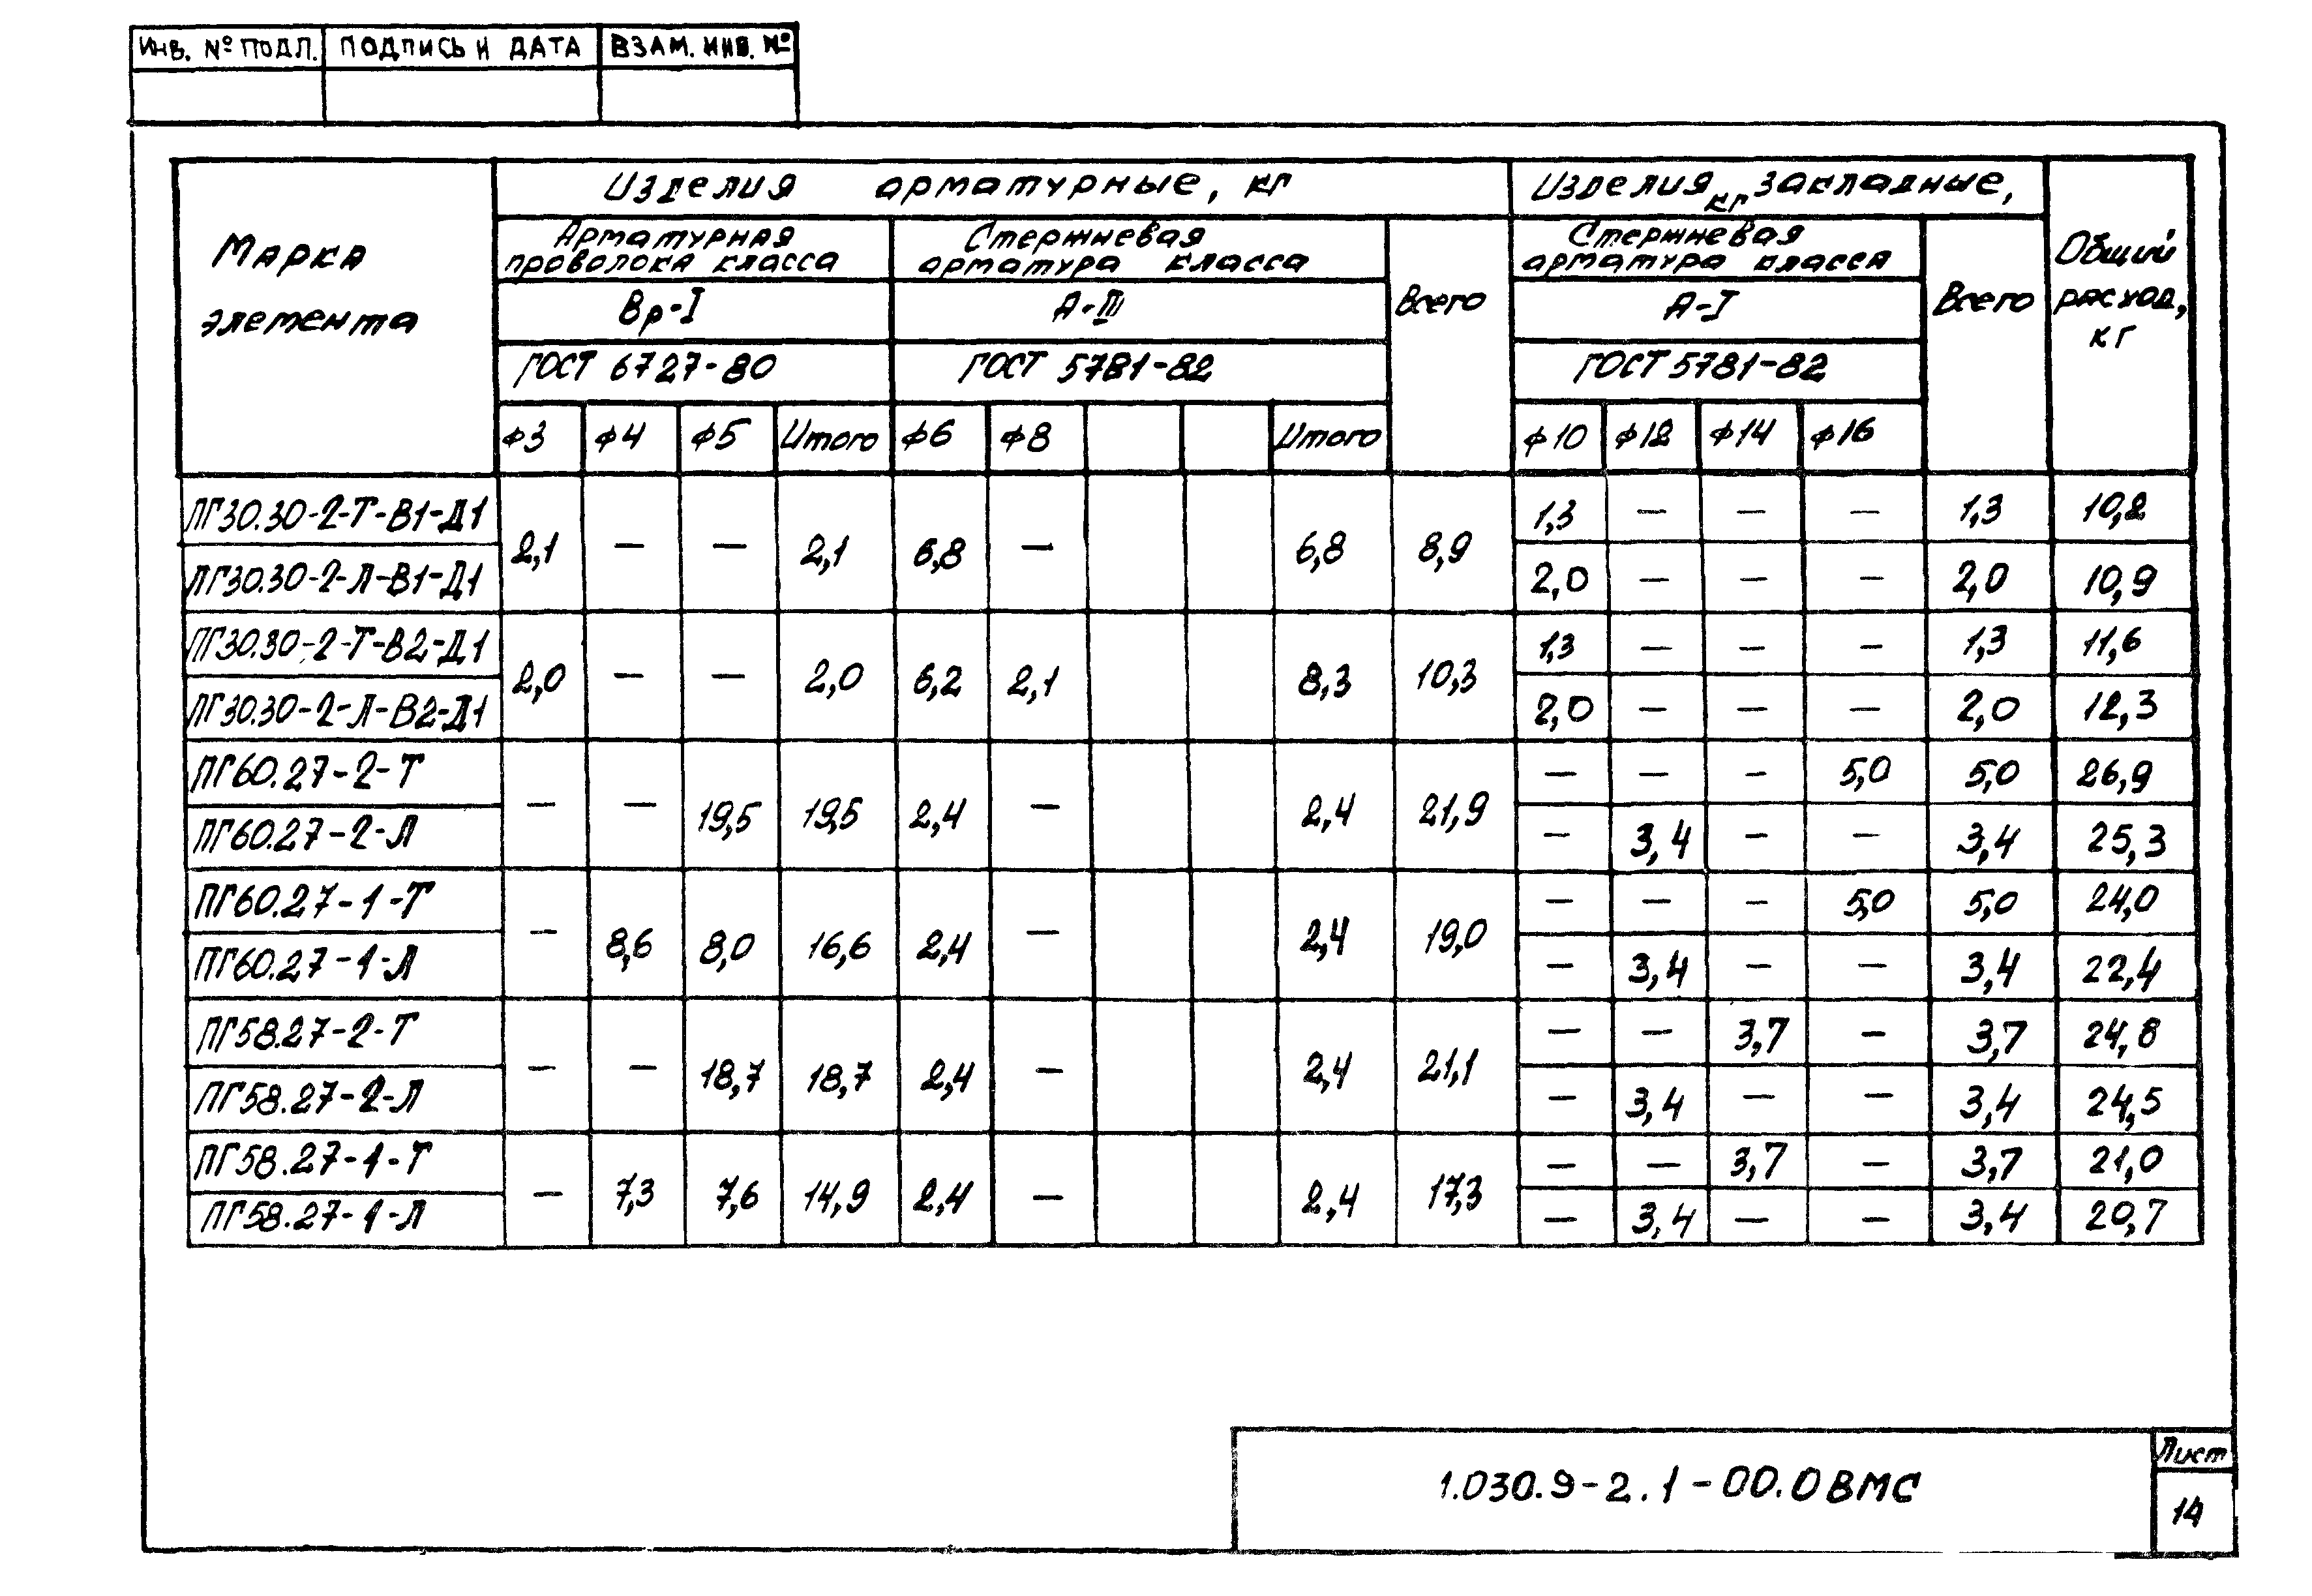 Инв. № подл. Подпись и дата Взам. инв. №
Марка элемента Изделия арматурные, кг Изделия закладные, кг Общий расход, кг
Арматурная проволока класса Стержневая арматура класса Всего Стержневая арматура класса Всего
Вр-I А-III А-I
ГОСТ 6727-80 ГОСТ 5781-82 ГОСТ 5781-82
ф3 ф4 ф5 Итого ф6 ф8 Итого ф10 ф12 ф14 ф16
ПГ30.30-2-Т-В1-Д1 2,1 — — 2,1 6,8 — 6,8 8,9 1,3 — — — 1,3 10,2
ПГ30.30-2-Л-В1-Д1 2,0 — — — 2,0 10,9
ПГ30.30-2-Т-В2-Д1 2,0 — — 2,0 6,2 2,1 8,3 10,3 1,3 — — — 1,3 11,6
ПГ30.30-2-Л-В2-Д1 2,0 — — — 2,0 12,3
ПГ60.27-2-Т — — 19,5 19,5 2,4 — 2,4 21,9 — — — 5,0 5,0 26,9
ПГ60.27-2-Л — 3,4 — — 3,4 25,3
ПГ60.27-1-Т — 8,6 8,0 16,6 2,4 — 2,4 19,0 — — — 5,0 5,0 24,0
ПГ60.27-1-Л — 3,4 — — 3,4 22,4
ПГ58.27-2-Т — — 18,7 18,7 2,4 — 2,4 21,1 — — 3,7 — 3,7 24,8
ПГ58.27-2-Л — 3,4 — — 3,4 24,5
ПГ58.27-1-Т — 7,3 7,6 14,9 2,4 — 2,4 17,3 — — 3,7 — 3,7 21,0
ПГ58.27-1-Л — 3,4 — — 3,4 20,7
1.030.9-2.1-00.0ВМС
Лист
14